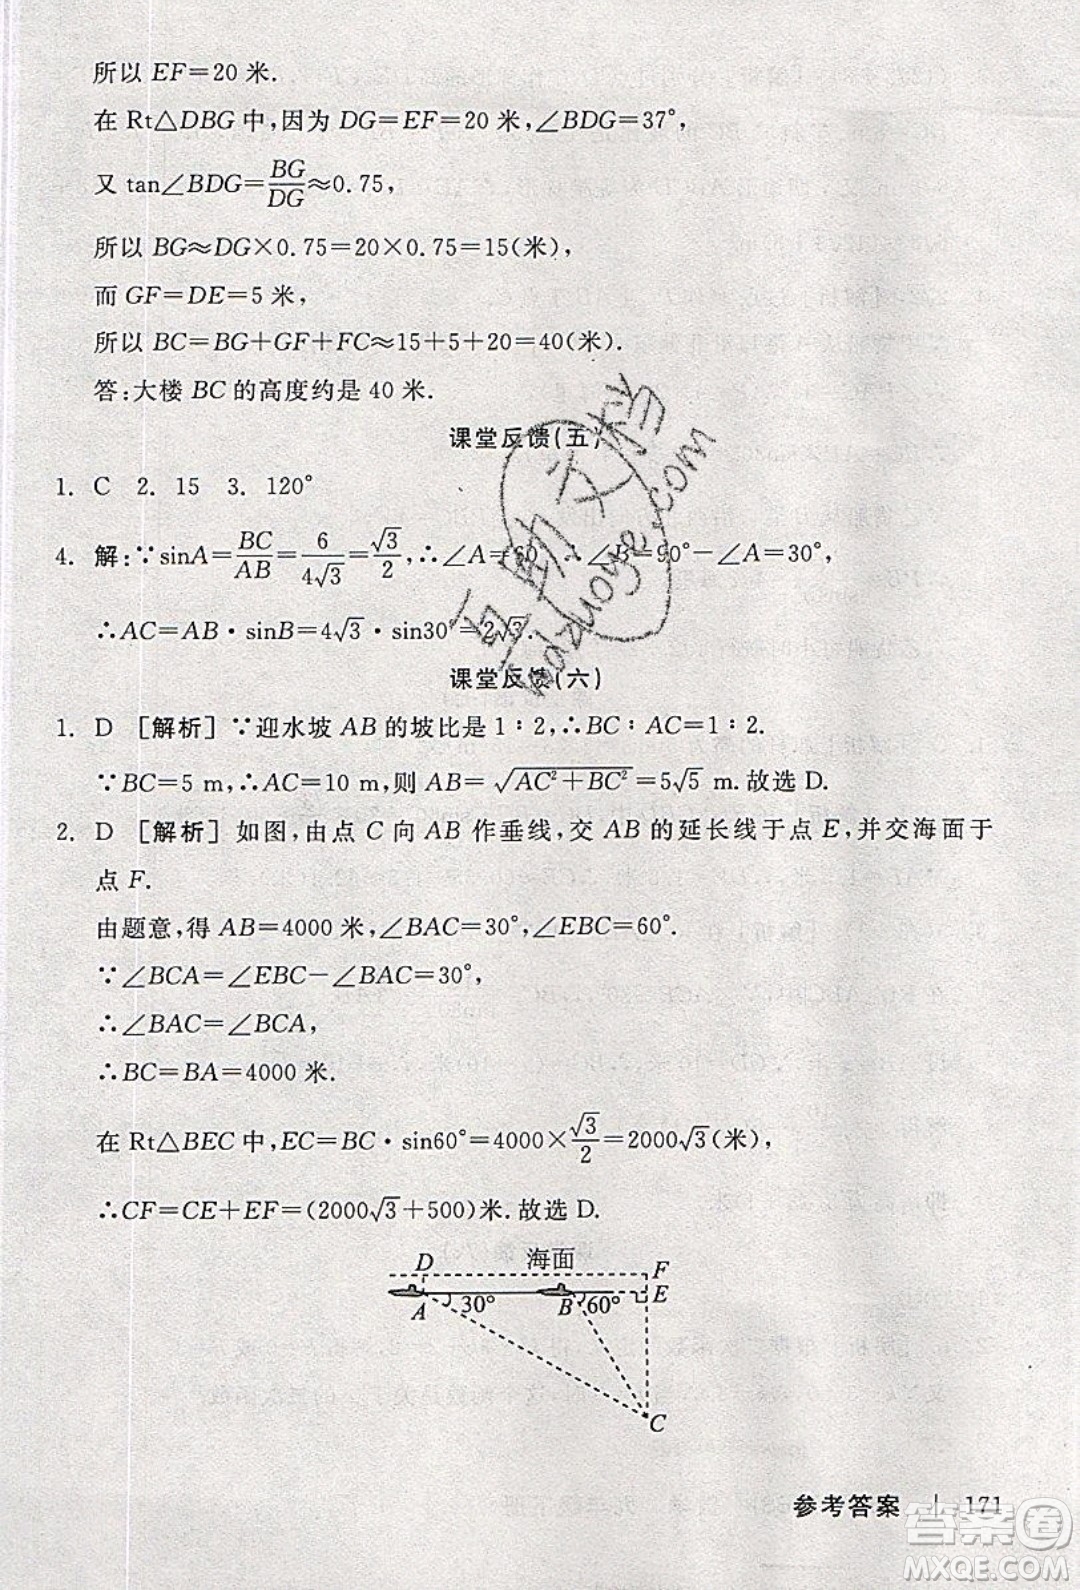 所以 EF=20 米.
在 Rt△DBG 中,因为 DG=EF=20 米,∠BDG=37°,
又 tan∠BDG=BG/DG≈0.75,
所以 BG≈DG×0.75=20×0.75=15(米),
而 GF=DE=5 米,
所以 BC=BG+GF+FC≈15+5+20=40(米).
答:大楼 BC 的高度约是 40 米.
课堂反馈(五)
1. C 2. 15 3. 120°
4. 解:∵sinA=BC/AB=6/4√3=√3/2,∴∠A=60°,∴∠B=90°-∠A=30°,
∴AC=AB·sinB=4√3·sin30°=2√3.
课堂反馈(六)
1. D [解析]∵迎水坡 AB 的坡比是 1∶2,∴BC∶AC=1∶2.
∵BC=5 m,∴AC=10 m,则 AB=√(AC²+BC²)=5√5 m.故选 D.
2. D [解析] 如图,由点 C 向 AB 作垂线,交 AB 的延长线于点 E,并交海面于
点 F.
由题意,得 AB=4000 米,∠BAC=30°,∠EBC=60°.
∵∠BCA=∠EBC-∠BAC=30°,
∴∠BAC=∠BCA,
∴BC=BA=4000 米.
在 Rt△BEC 中,EC=BC·sin60°=4000×√3/2=2000√3(米),
∴CF=CE+EF=(2000√3+500)米.故选 D.
D 海面 F
A 30° B 60° E
C
参考答案 | 171
互助文档
hdzuoye.com
答案圈
MXQE.COM